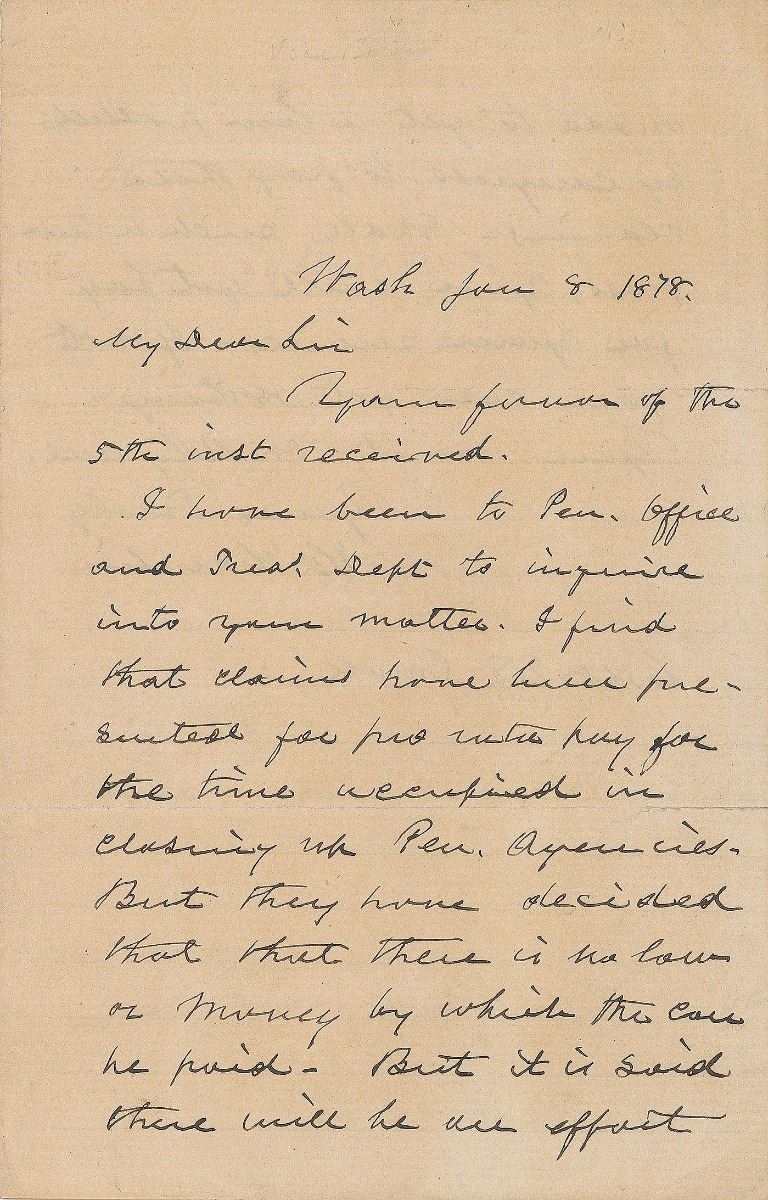 Wash Jan 8 1878.
My Dear Sir
Your favor of the
5th inst received.
I have been to Pen. Office
and Treas. Dept to inquire
into your matter. I find
that claims have been pre-
sented for pro rata pay for
the time occupied in
closing up Pen. Agencies-
But they have decided
that that there is no law
or money by which the can
be paid - But it is said
there will be an effort